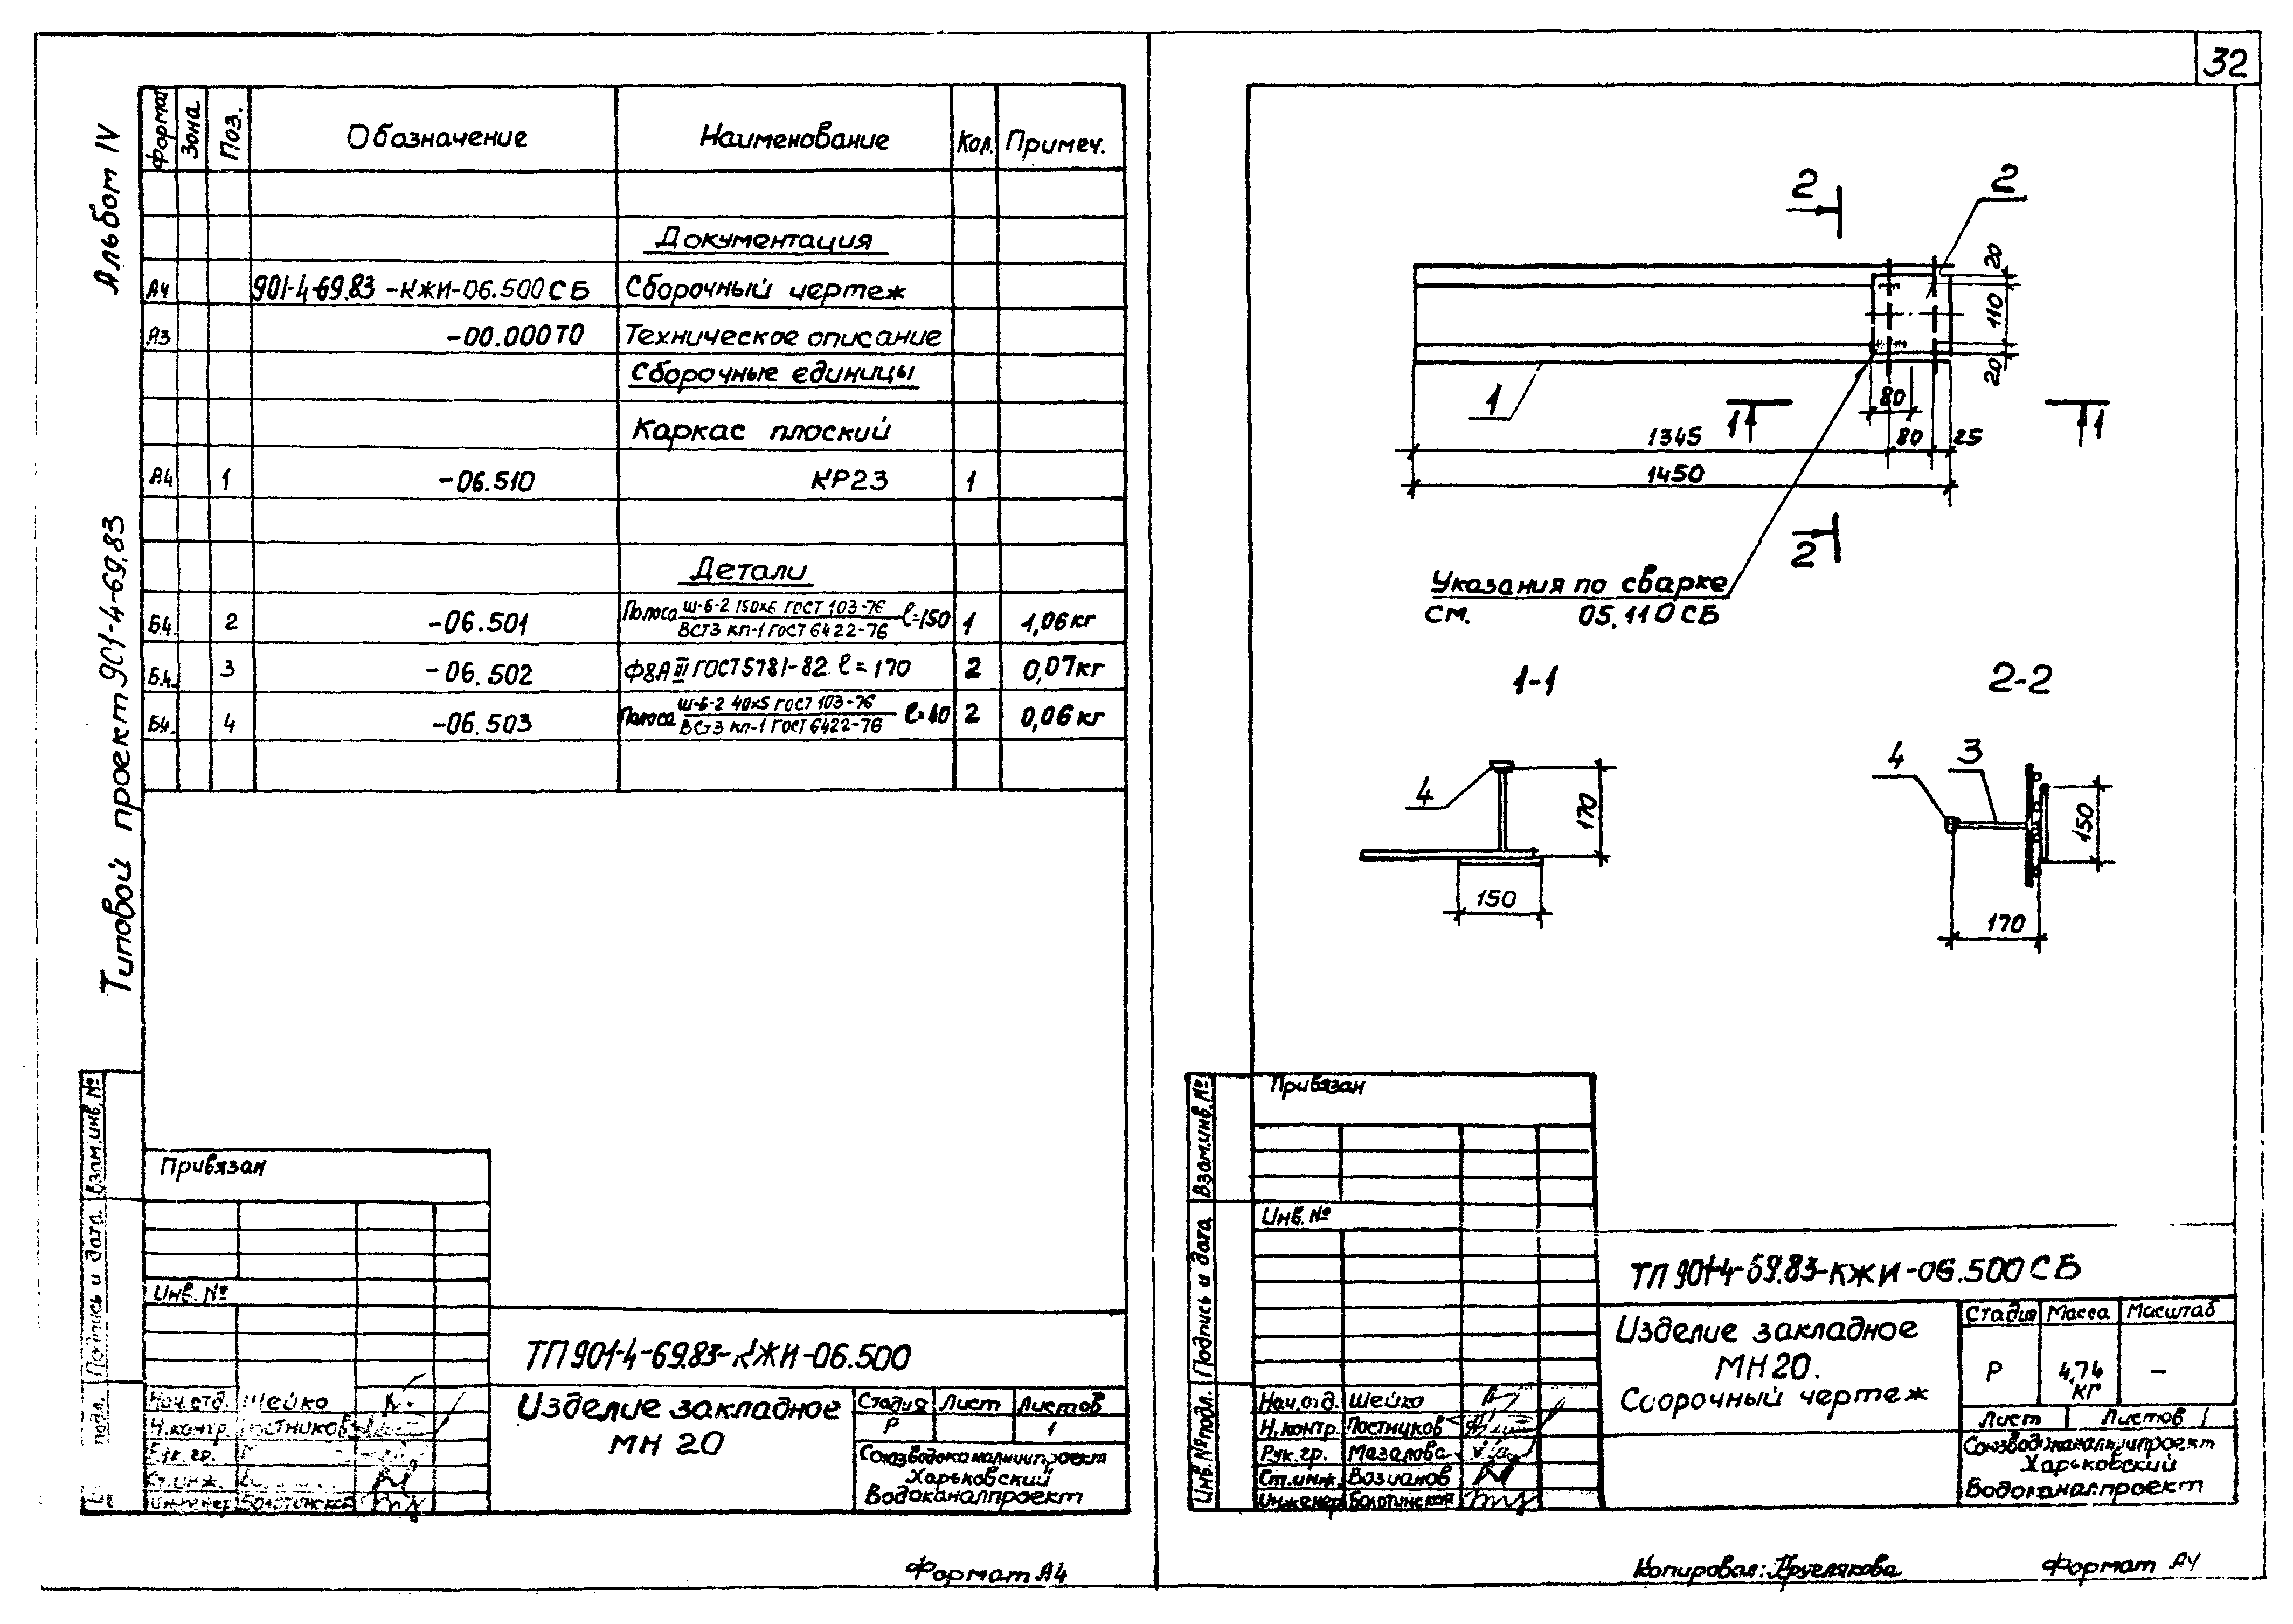 32
Альбом IV
Типовой проект 901-4-69.83
Формат Зона Поз. Обозначение Наименование Кол. Примеч.
Документация
А4 901-4-69.83-КЖИ-06.500СБ Сборочный чертеж
А3 -00.000ТО Техническое описание
Сборочные единицы
Каркас плоский
А4 1 -06.510 КР23 1
Детали
Б4. 2 -06.501 Полоса Ш-Б-2 150х6 ГОСТ 103-76 / ВСт3 кп-1 ГОСТ 6422-76 ℓ=150 1 1,06кг
Б.4. 3 -06.502 Ф8АIII ГОСТ 5781-82. ℓ=170 2 0,07кг
Б4. 4 -06.503 Полоса Ш-Б-2 40х5 ГОСТ 103-76 / ВСт3 кп-1 ГОСТ 6422-76 ℓ=40 2 0,06кг
Взам.инв.№
Подпись и дата
подл.
Привязан
Инв. №
ТП 901-4-69.83-КЖИ-06.500
Нач.отд. Шейко
Н.контр. Постников
Рук. гр.
Ст.инж.
Инженер Болотинской
Изделие закладное
МН 20
Стадия Лист Листов
Р 1
Союзводоканалниипроект
Харьковский
Водоканалпроект
Формат А4
2 2
20
110
20
1
80
1 1
1345 80 25
1450
2
Указания по сварке
см. 05.110СБ
1-1
2-2
4
170
150
4 3
150
170
Взам.инв.№
Подпись и дата
Инв.№ подл.
Привязан
Инв. №
ТП 901-4-69.83-КЖИ-06.500СБ
Нач.отд. Шейко
Н.контр. Постников
Рук. гр. Мазалова
Ст.инж. Возианов
Инженер Болотинской
Изделие закладное
МН 20.
Сборочный чертеж
Стадия Масса Масштаб
Р 4,74 кг –
Лист Листов 1
Союзводоканалниипроект
Харьковский
Водоканалпроект
Копировал: Круглякова Формат А4